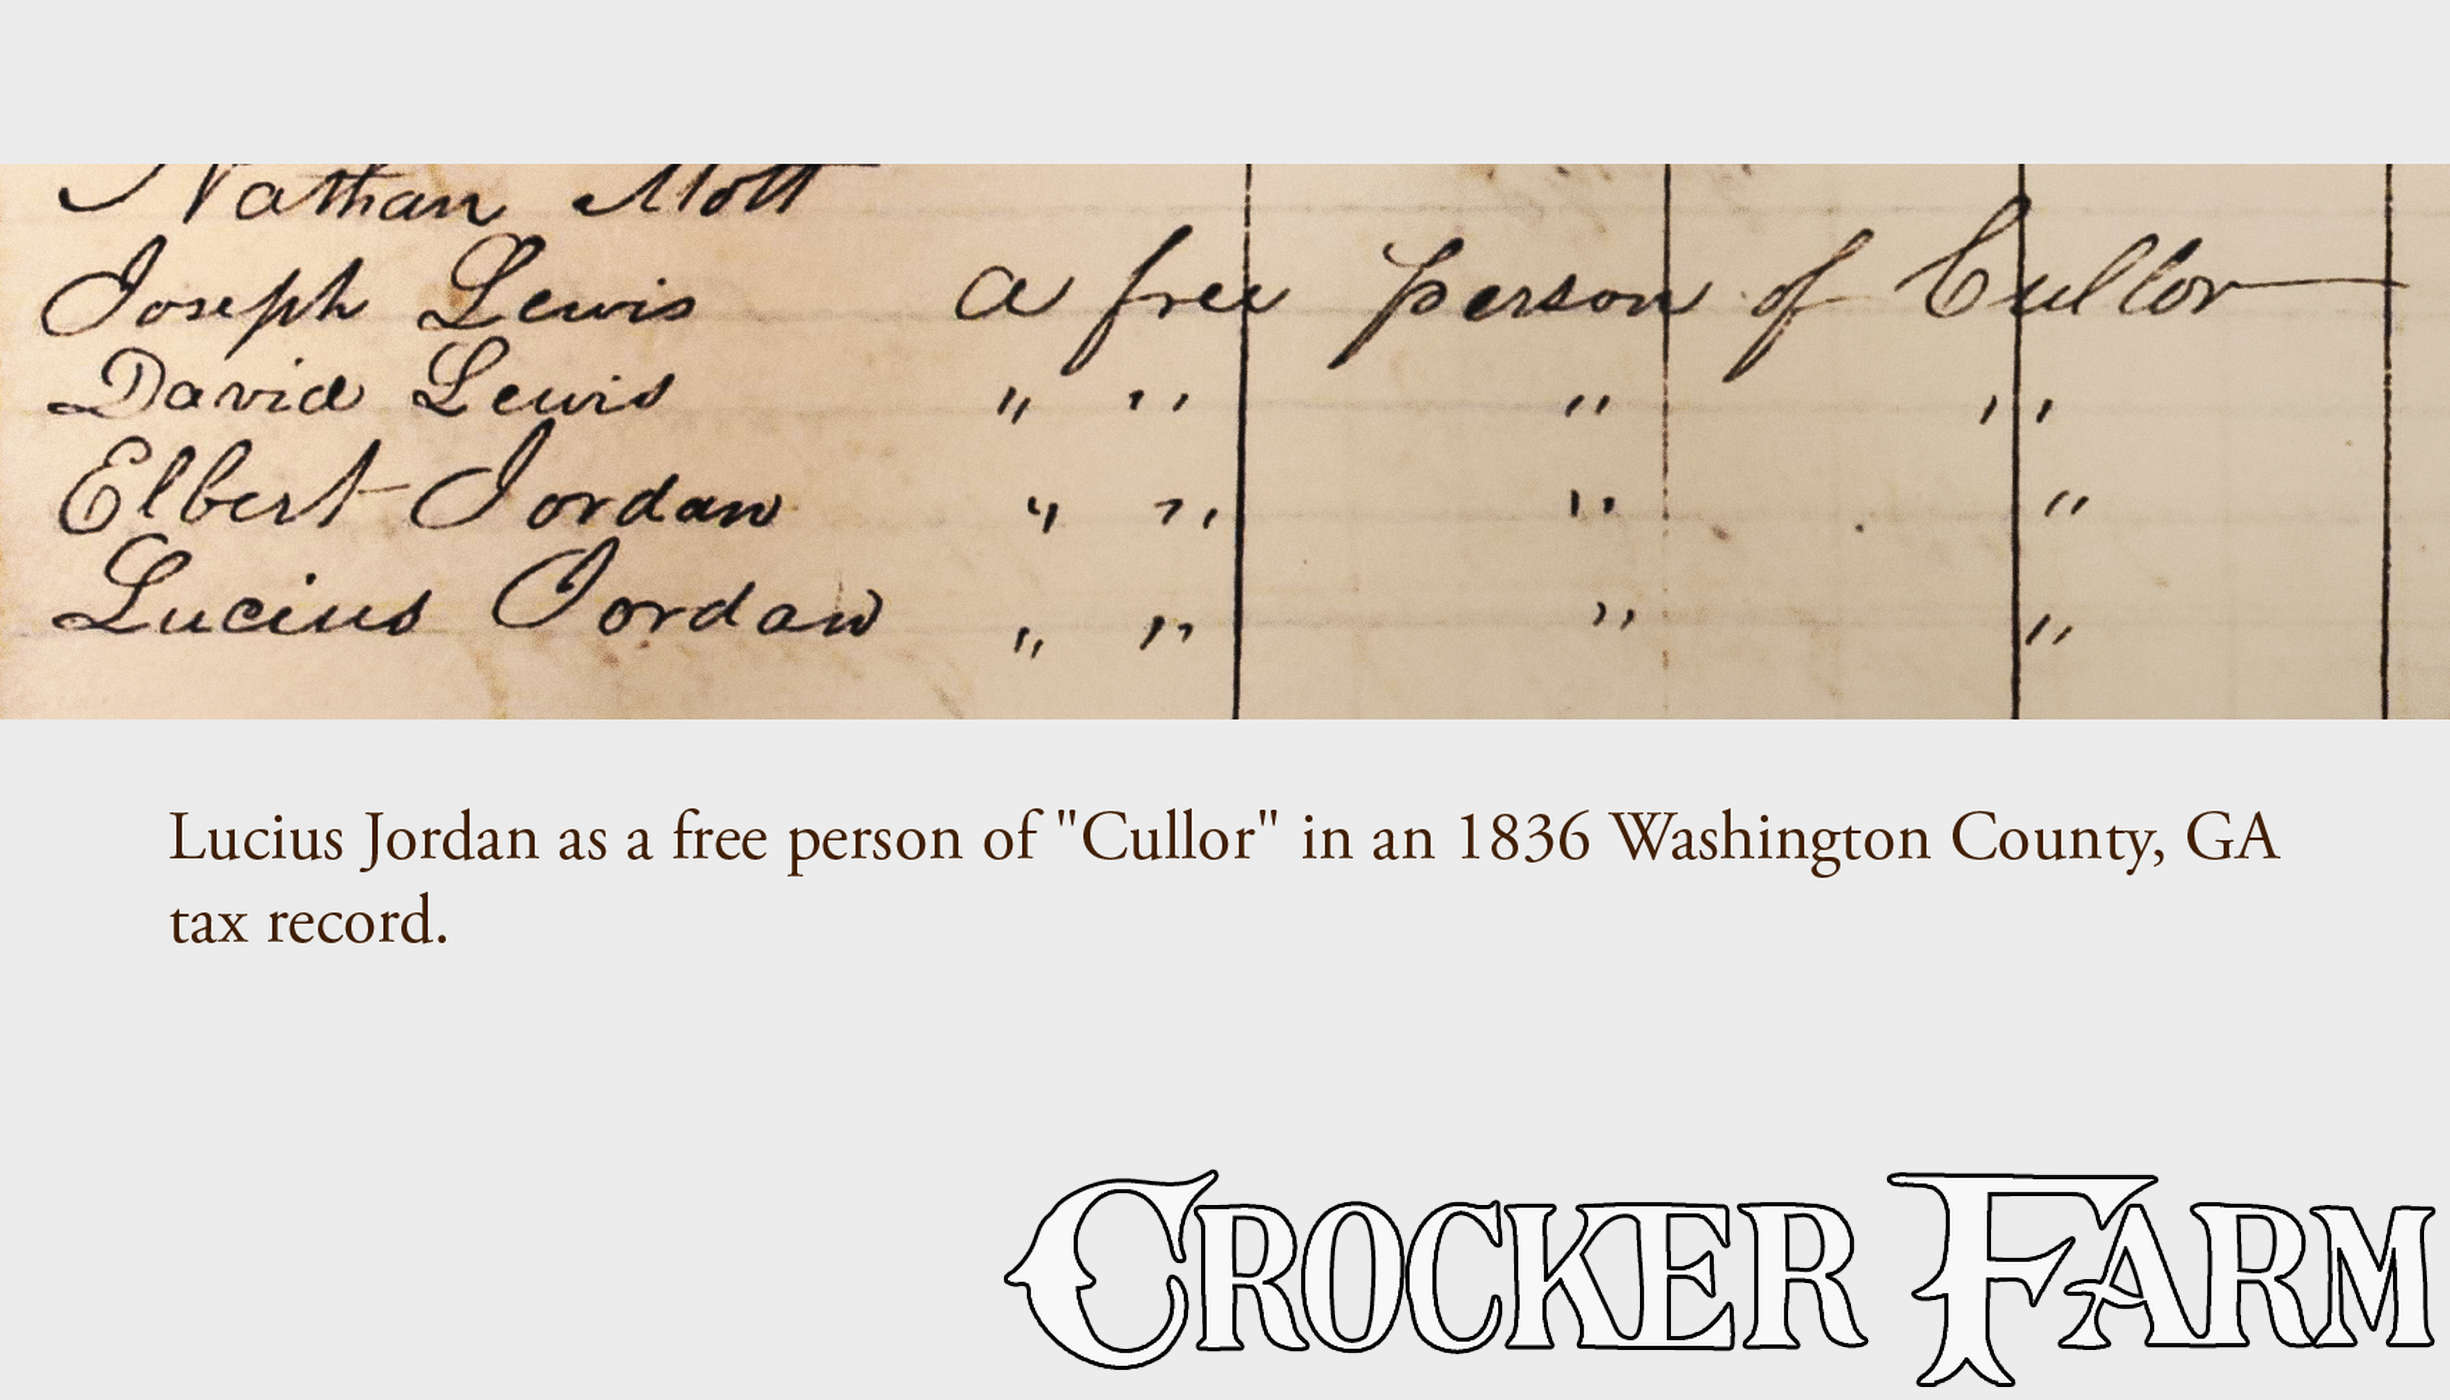 Nathan Mott
Joseph Lewis a free person of Cullor
David Lewis " " " "
Elbert Jordan " " " "
Lucius Jordan " " " "
Lucius Jordan as a free person of "Cullor" in an 1836 Washington County, GA
tax record.
CROCKER FARM